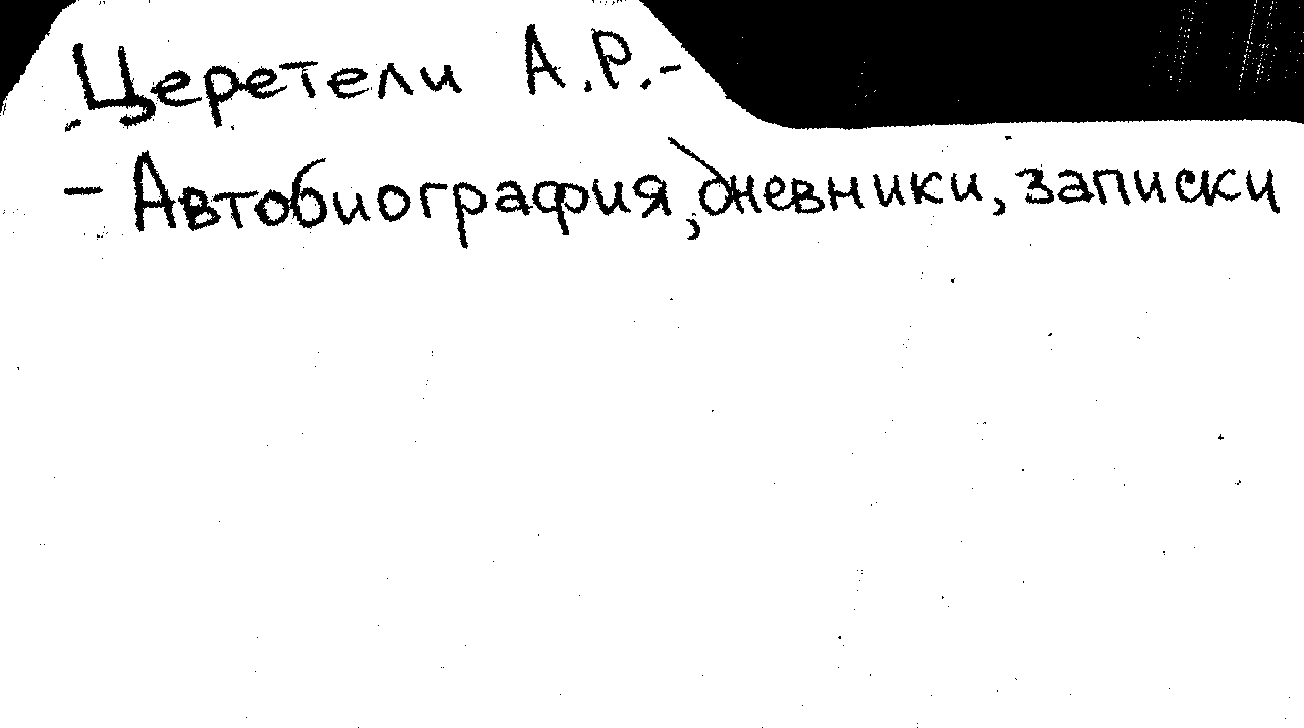 Церетели А.Р.-
- Автобиография, дневники, записки